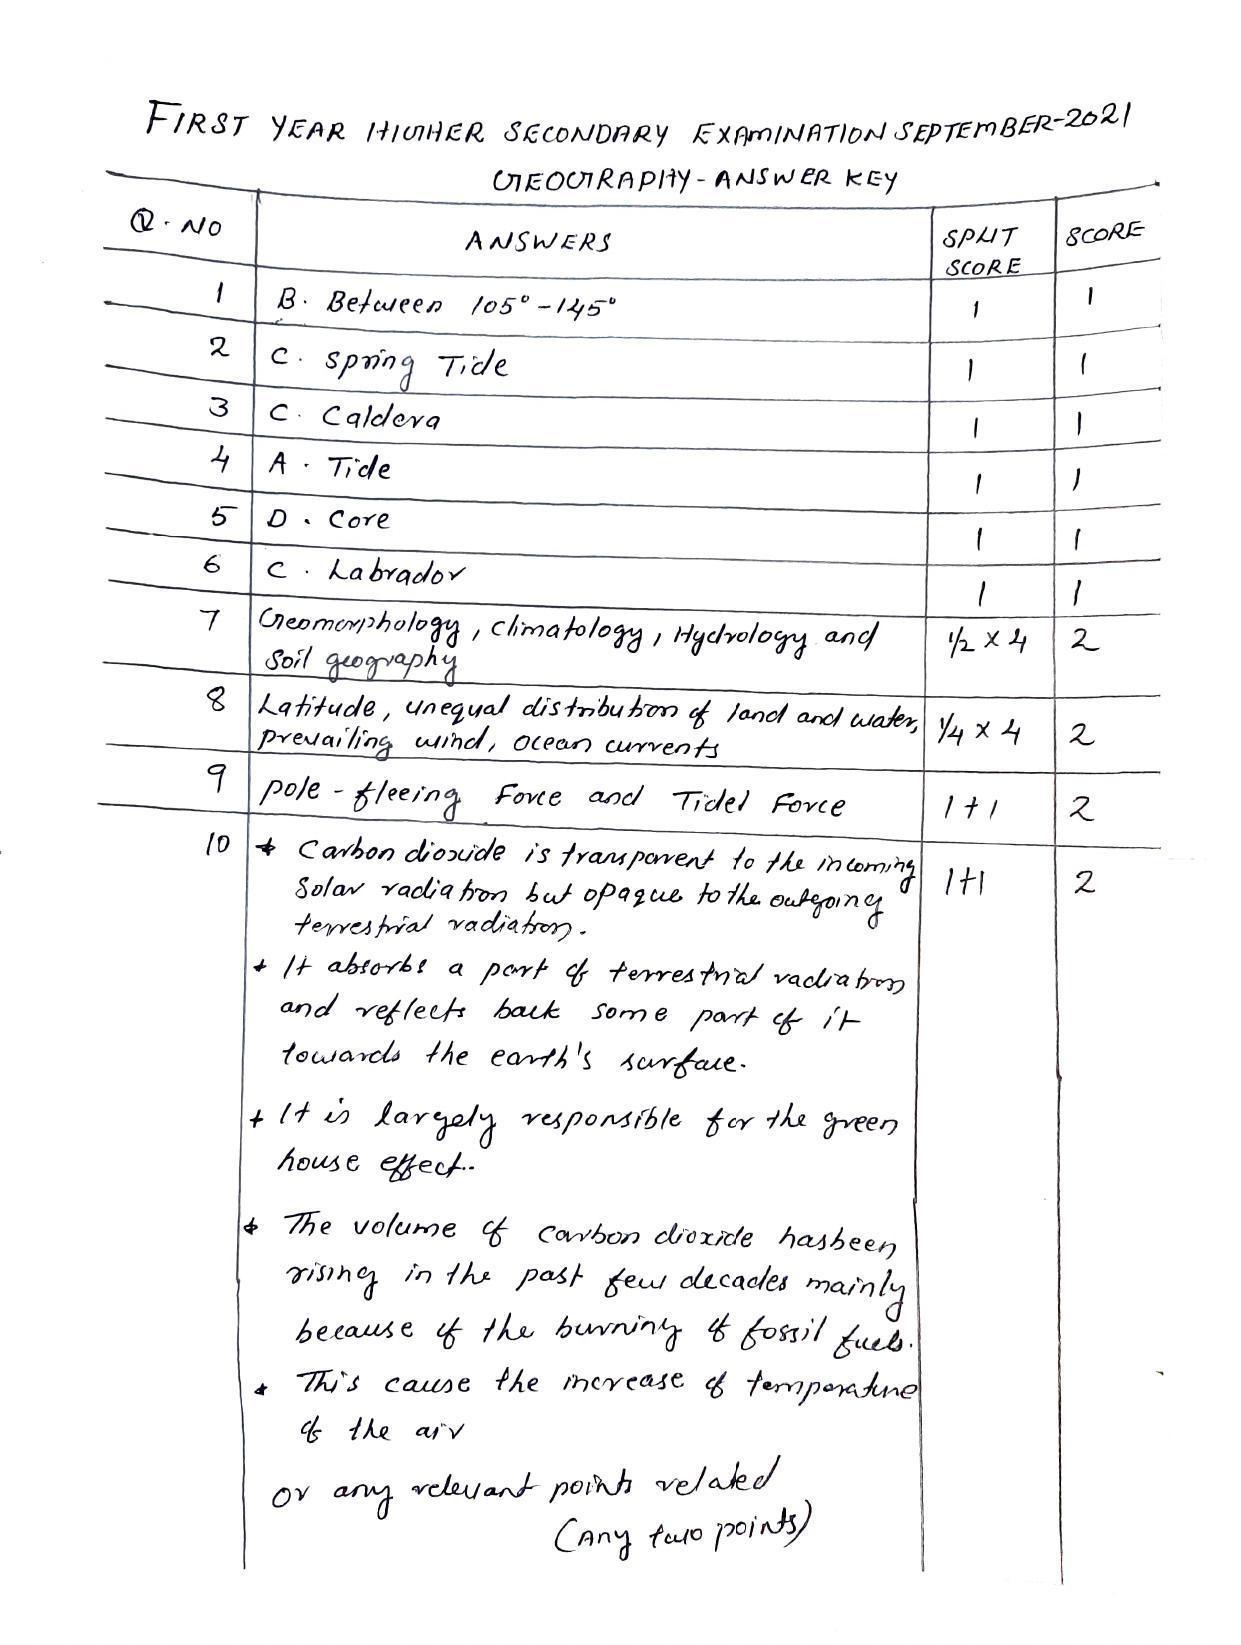 FIRST YEAR HIGHER SECONDARY EXAMINATION SEPTEMBER-2021
GEOGRAPHY - ANSWER KEY
Q. NO ANSWERS SPLIT SCORE SCORE
1 B. Between 105° - 145° 1 1
2 C. Spring Tide 1 1
3 C. Caldera 1 1
4 A. Tide 1 1
5 D. Core 1 1
6 C. Labrador 1 1
7 Geomorphology, Climatology, Hydrology and 1/2 x 4 2
Soil geography
8 Latitude, unequal distribution of land and water, 1/4 x 4 2
prevailing wind, ocean currents
9 pole - fleeing Force and Tidel Force 1+1 2
10 * Carbon dioxide is transparent to the incoming 1+1 2
Solar radiation but opaque to the outgoing
terrestrial radiation.
* It absorbs a part of terrestrial radiation
and reflects back some part of it
towards the earth's surface.
* It is largely responsible for the green
house effect..
* The volume of carbon dioxide hasbeen
rising in the past few decades mainly
because of the burning of fossil fuels.
* This cause the increase of temperature
of the air
or any relevant points related
(Any two points)